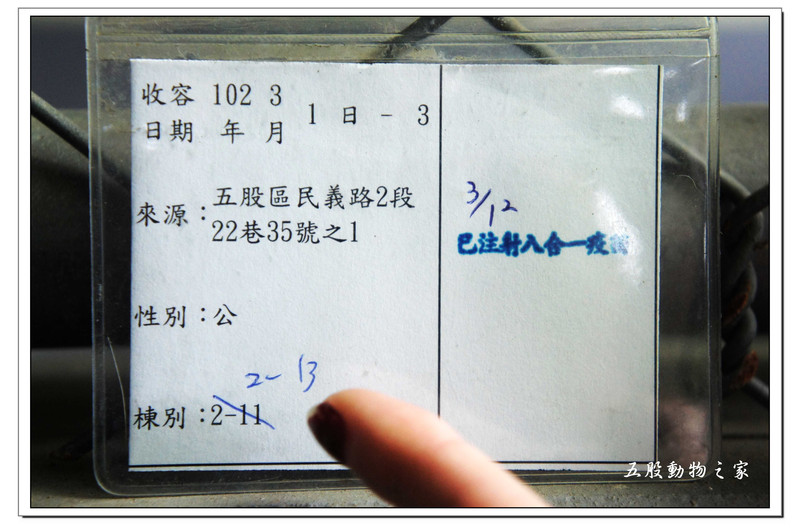 收容 102 3
日期 年 月 1 日 - 3
來源：五股區民義路2段
22巷35號之1
性別：公
2-13
棟別：2-11
3/12
已注射八合一疫苗
五股動物之家